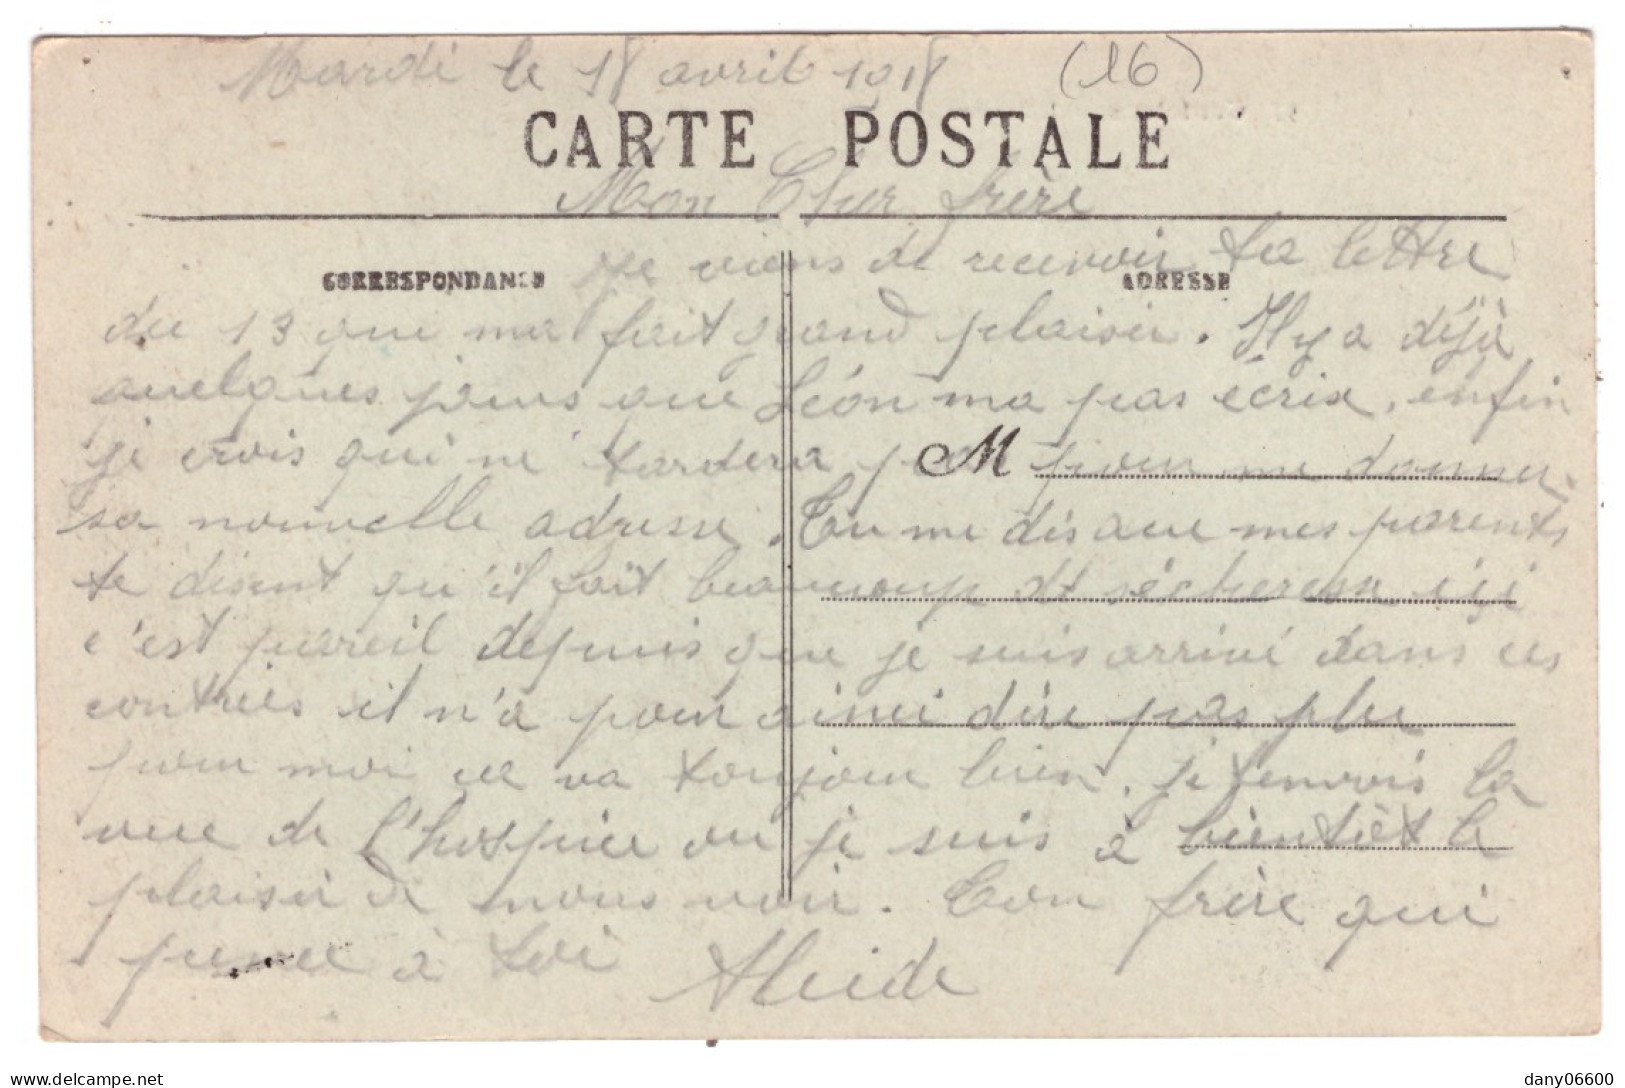 Mardi le 18 avril 1918 (16)
CARTE POSTALE
Mon Cher frère
CORRESPONDANCE
ADRESSE
je viens de recevoir ta lettre
du 13 que ma fait grand plaisir. Il y a déjà
quelques jours que Léon ma pas écrit, enfin
je crois qui ne tardera pas M pour me donner
sa nouvelle adresse. Tu me dis que mes parents
te disent qu'il fait beaucoup de sécheresse ici
c'est pareil depuis que je suis arrivé dans ces
contrées il n'a pour ainsi dire pas plu
pour moi ça va toujour bien. je t'envois la
vue de l'hospice ou je suis à bientôt le
plaisir de nous voir. Ton frère qui
pense à toi Alcide
dany06600